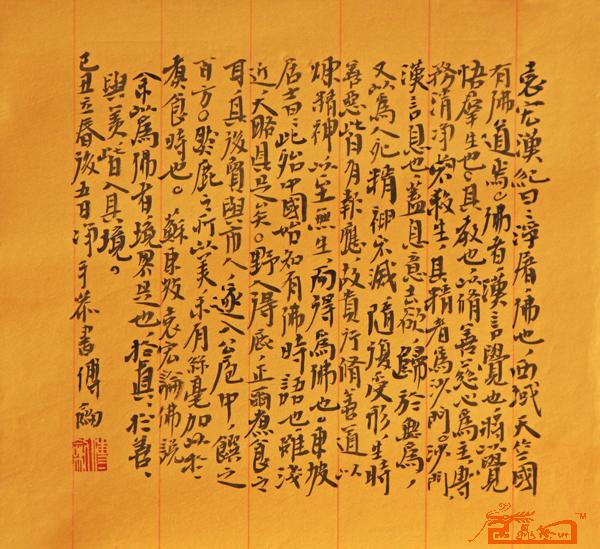 袁宏漢紀曰：浮屠，佛也，西域天竺國
有佛道焉。佛者，漢言覺也，將以覺
悟羣生也。其教也，以脩善慈心為主，專
務清淨，不殺生，其精者為沙門。沙門，
漢言息也，蓋息意去欲，歸於無為，
又以為人死精神不滅，隨復受形，生時
善惡皆有報應，故貴行脩善道，以
煉精神，以至無生，而得為佛也。東坡
居士曰：此殆中國始知有佛時語也，雖淺
近，大略具足矣。野人得鹿，正爾煮食之
耳，其後賣與市人，遂入公庖中，饌之
百方。然鹿之所以美，未有絲毫加於
煮食時也。蘇東坡袁宏論佛說
余以為佛者，境界是也，於真、於善、
與美皆入其境。
己丑立春後五日淨手恭書傅